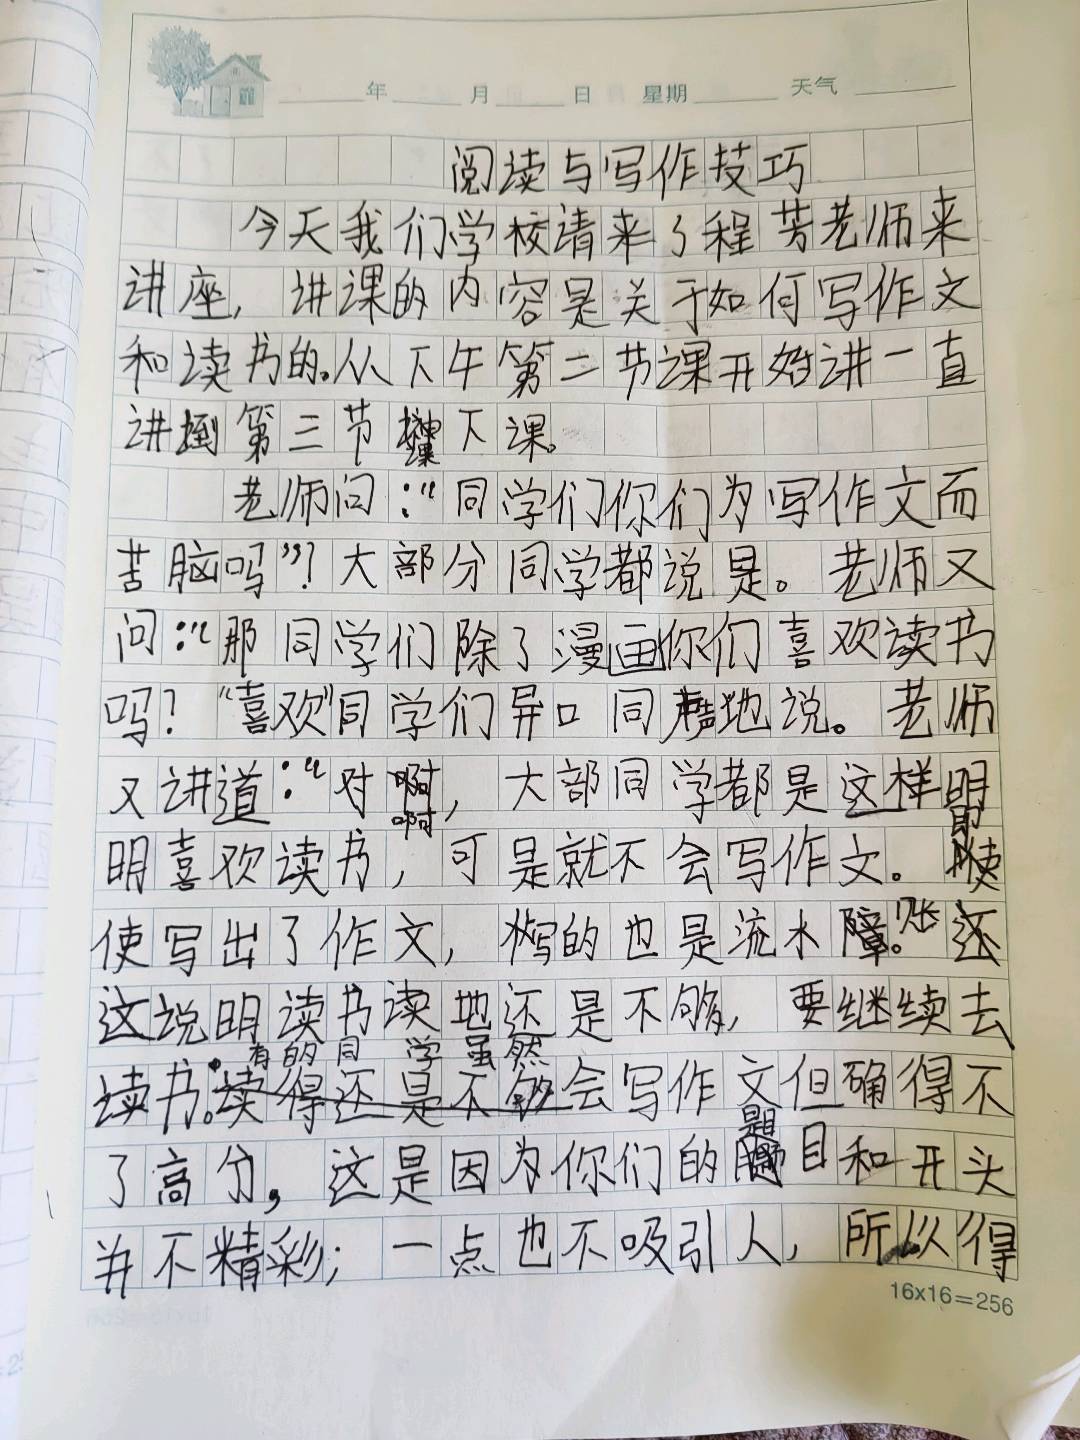 年 月 日 星期 天气
阅读与写作技巧
今天我们学校请来了程芳老师来
讲座，讲课的内容是关于如何写作文
和读书的。从下午第二节课开始讲一直
讲到第三节下课。
老师问：“同学们你们为写作文而
苦脑吗”？大部分同学都说是。老师又
问：“那同学们除了漫画你们喜欢读书
吗？“喜欢”同学们异口同声地说。老师
又讲道：“对啊，大部同学都是这样明
明喜欢读书，可是就不会写作文。即
使写出了作文，写的也是流水账。还
这说明读书读地还是不够，要继续去
有的同学虽然
读书。读得还是不够会写作文但确得不
了高分，这是因为你们的题目和开头
并不精彩；一点也不吸引人，所以得
16x16=256